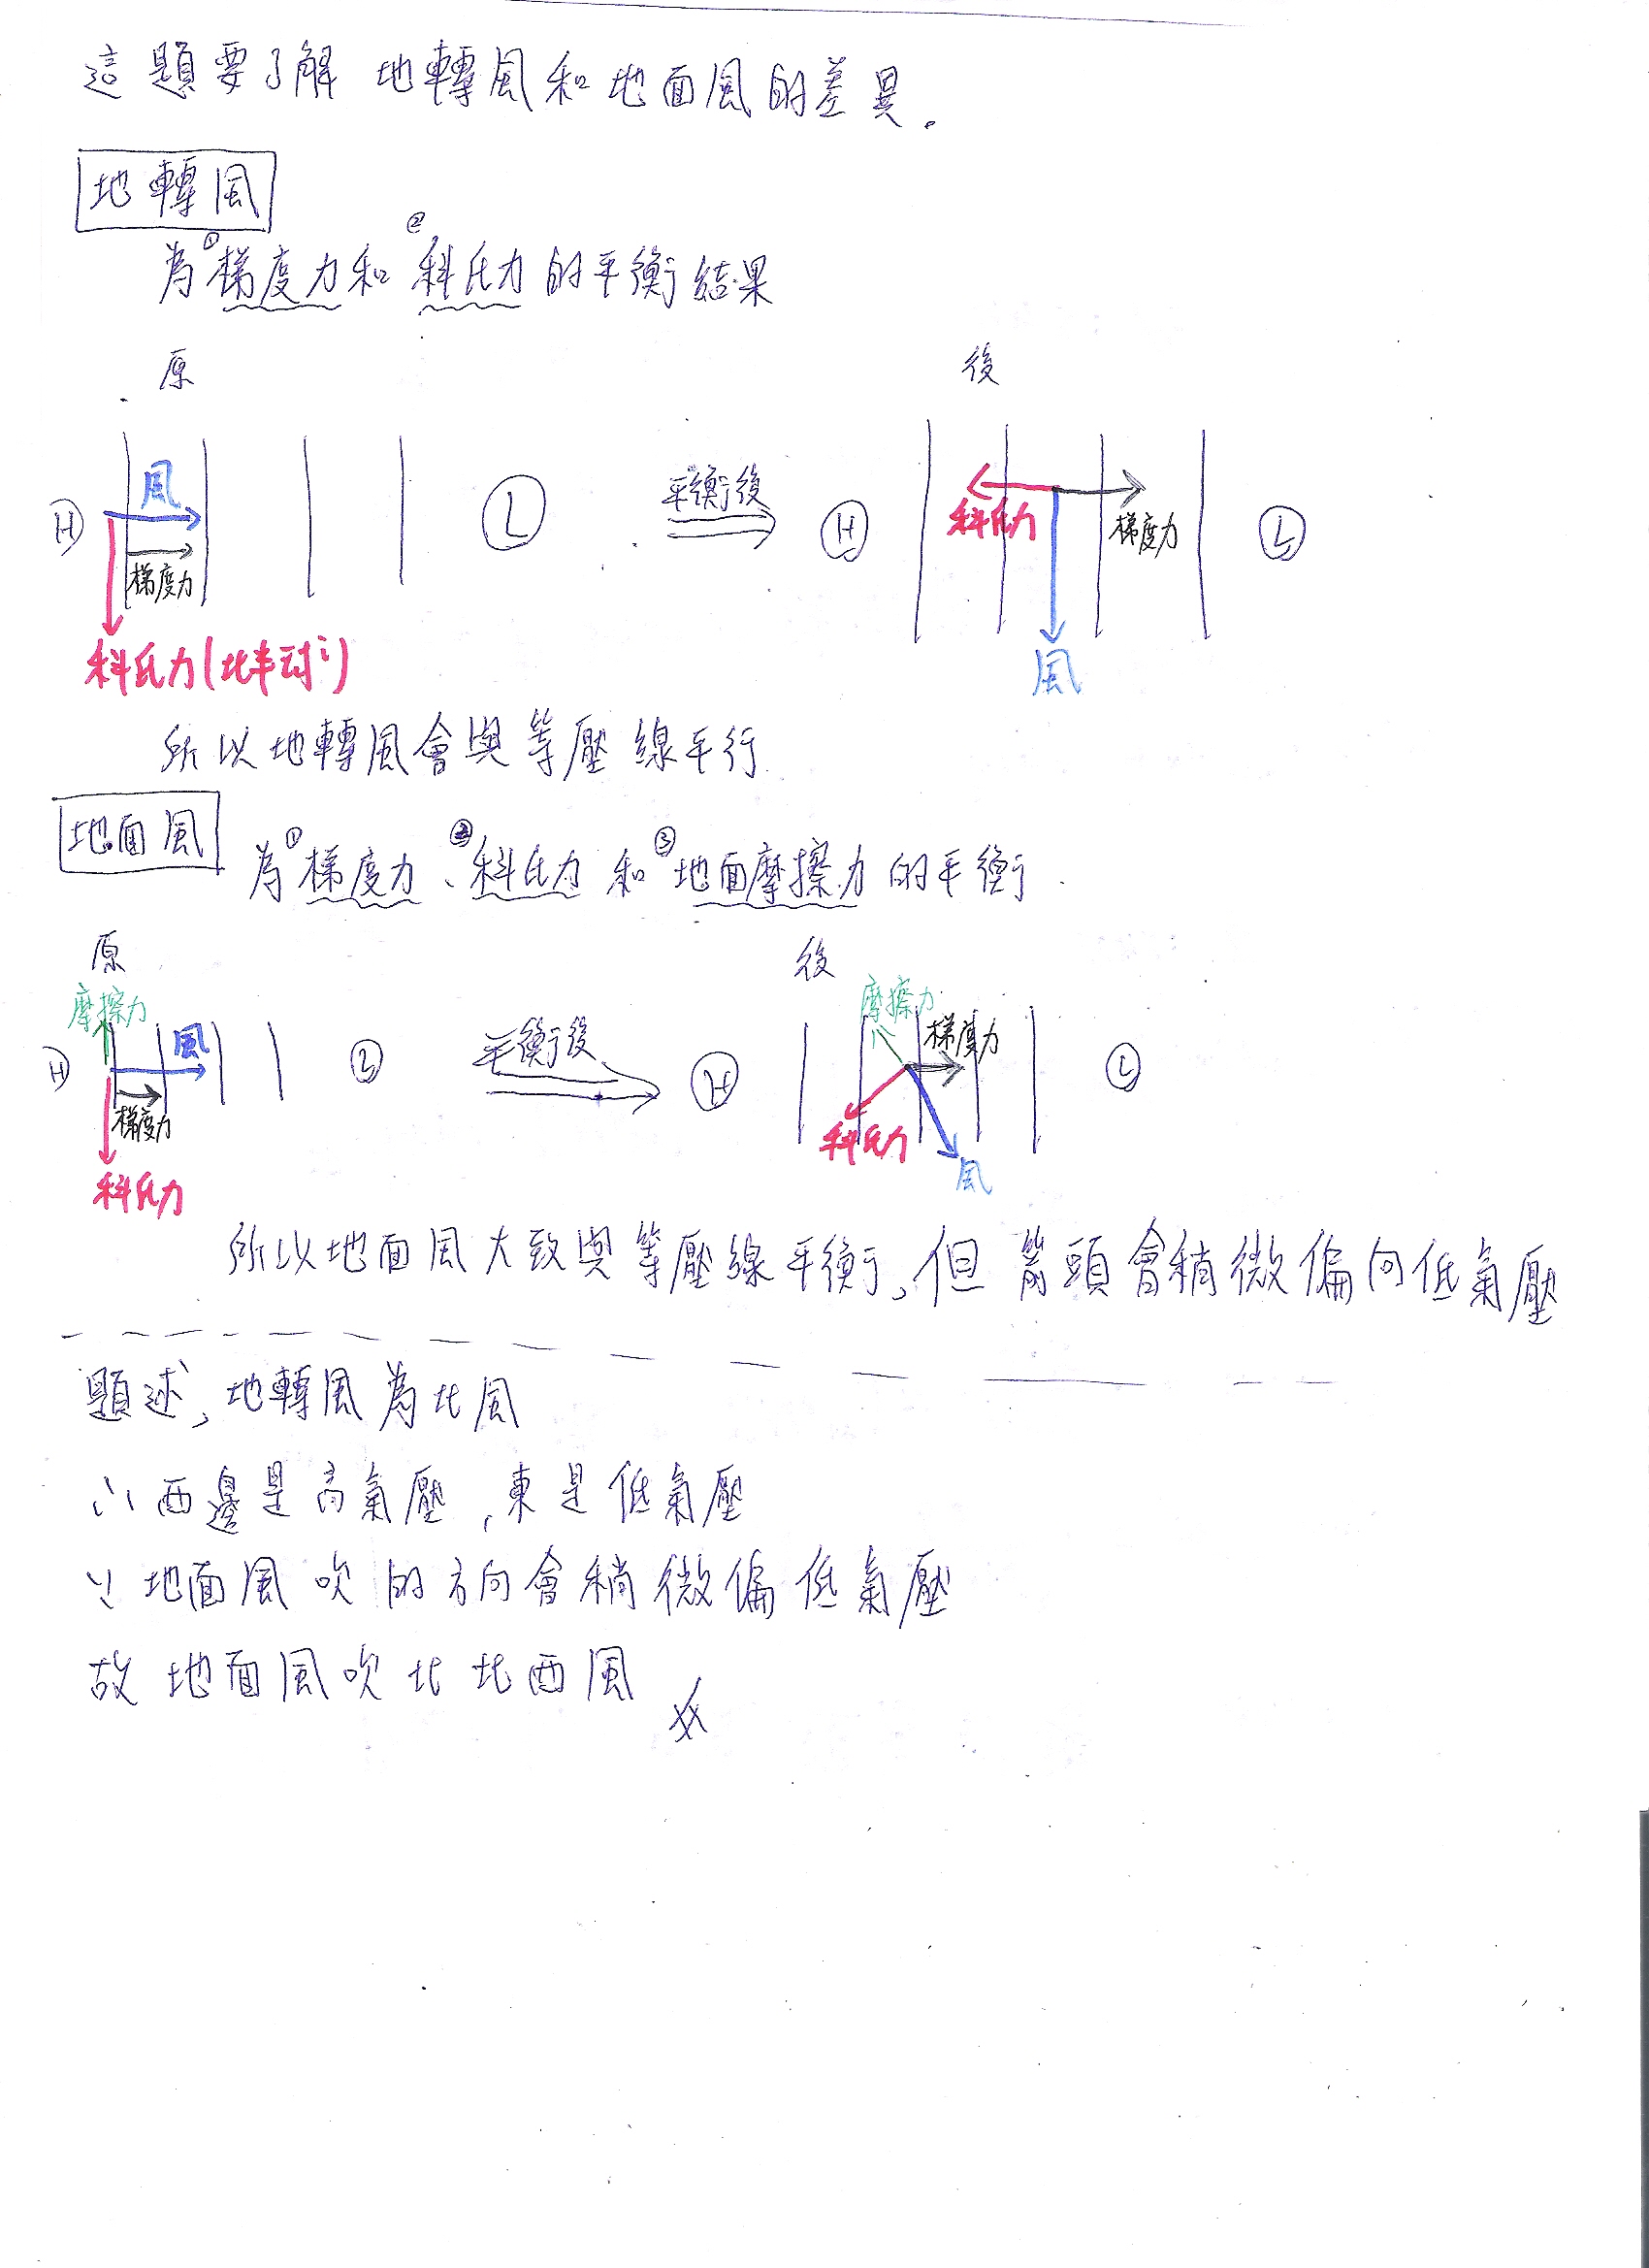 這題要了解 地轉風和地面風的差異.
地轉風
為①梯度力和②科氏力的平衡結果
原
後
風
平衡後
科氏力
梯度力
H
L
H
L
梯度力
科氏力(北半球)
風
所以地轉風會與等壓線平行
地面風
為①梯度力、②科氏力 和③地面摩擦力 的平衡.
原
後
摩擦力
摩擦力
風
平衡後
梯度力
H
L
H
L
梯度力
科氏力
科氏力
風
所以地面風大致與等壓線平衡, 但箭頭會稍微偏向低氣壓
題述, 地轉風為北風
∴西邊是高氣壓, 東是低氣壓
∵地面風吹的方向會稍微偏低氣壓
故地面風吹北北西風